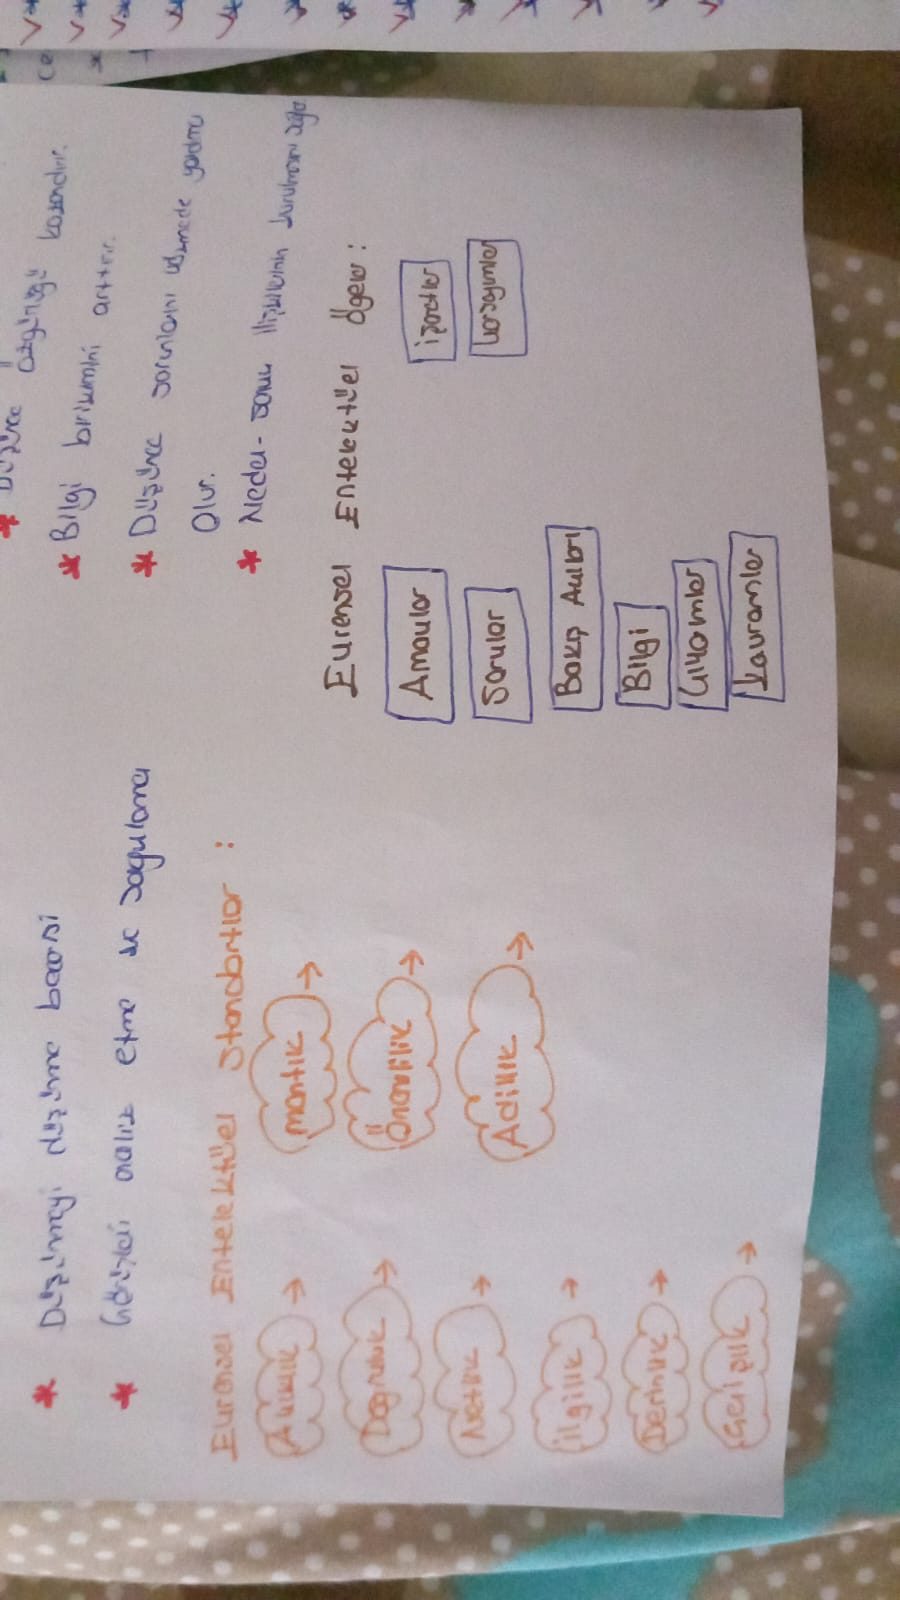 * Düşünmeyi düşünme becerisi
* Görüşleri analiz etme ve sorgulama
Evrensel Entelektüel Standartlar :
Açıklık →
Doğruluk →
Netlik →
İlgililik →
Derinlik →
Genişlik →
mantık →
Önemlilik →
Adillik →
* Düşünce özgürlüğü kazandırır.
* Bilgi birikimini arttırır.
* Düşünce sorunlarını çözmede yardımcı
Olur.
* Neden-sonuç ilişkisinin kurulmasını
Evrensel Entelektüel Ögeler :
Amaçlar
Sorular
Bakış Açıları
Bilgi
Çıkarımlar
Kavramlar
Varsayımlar